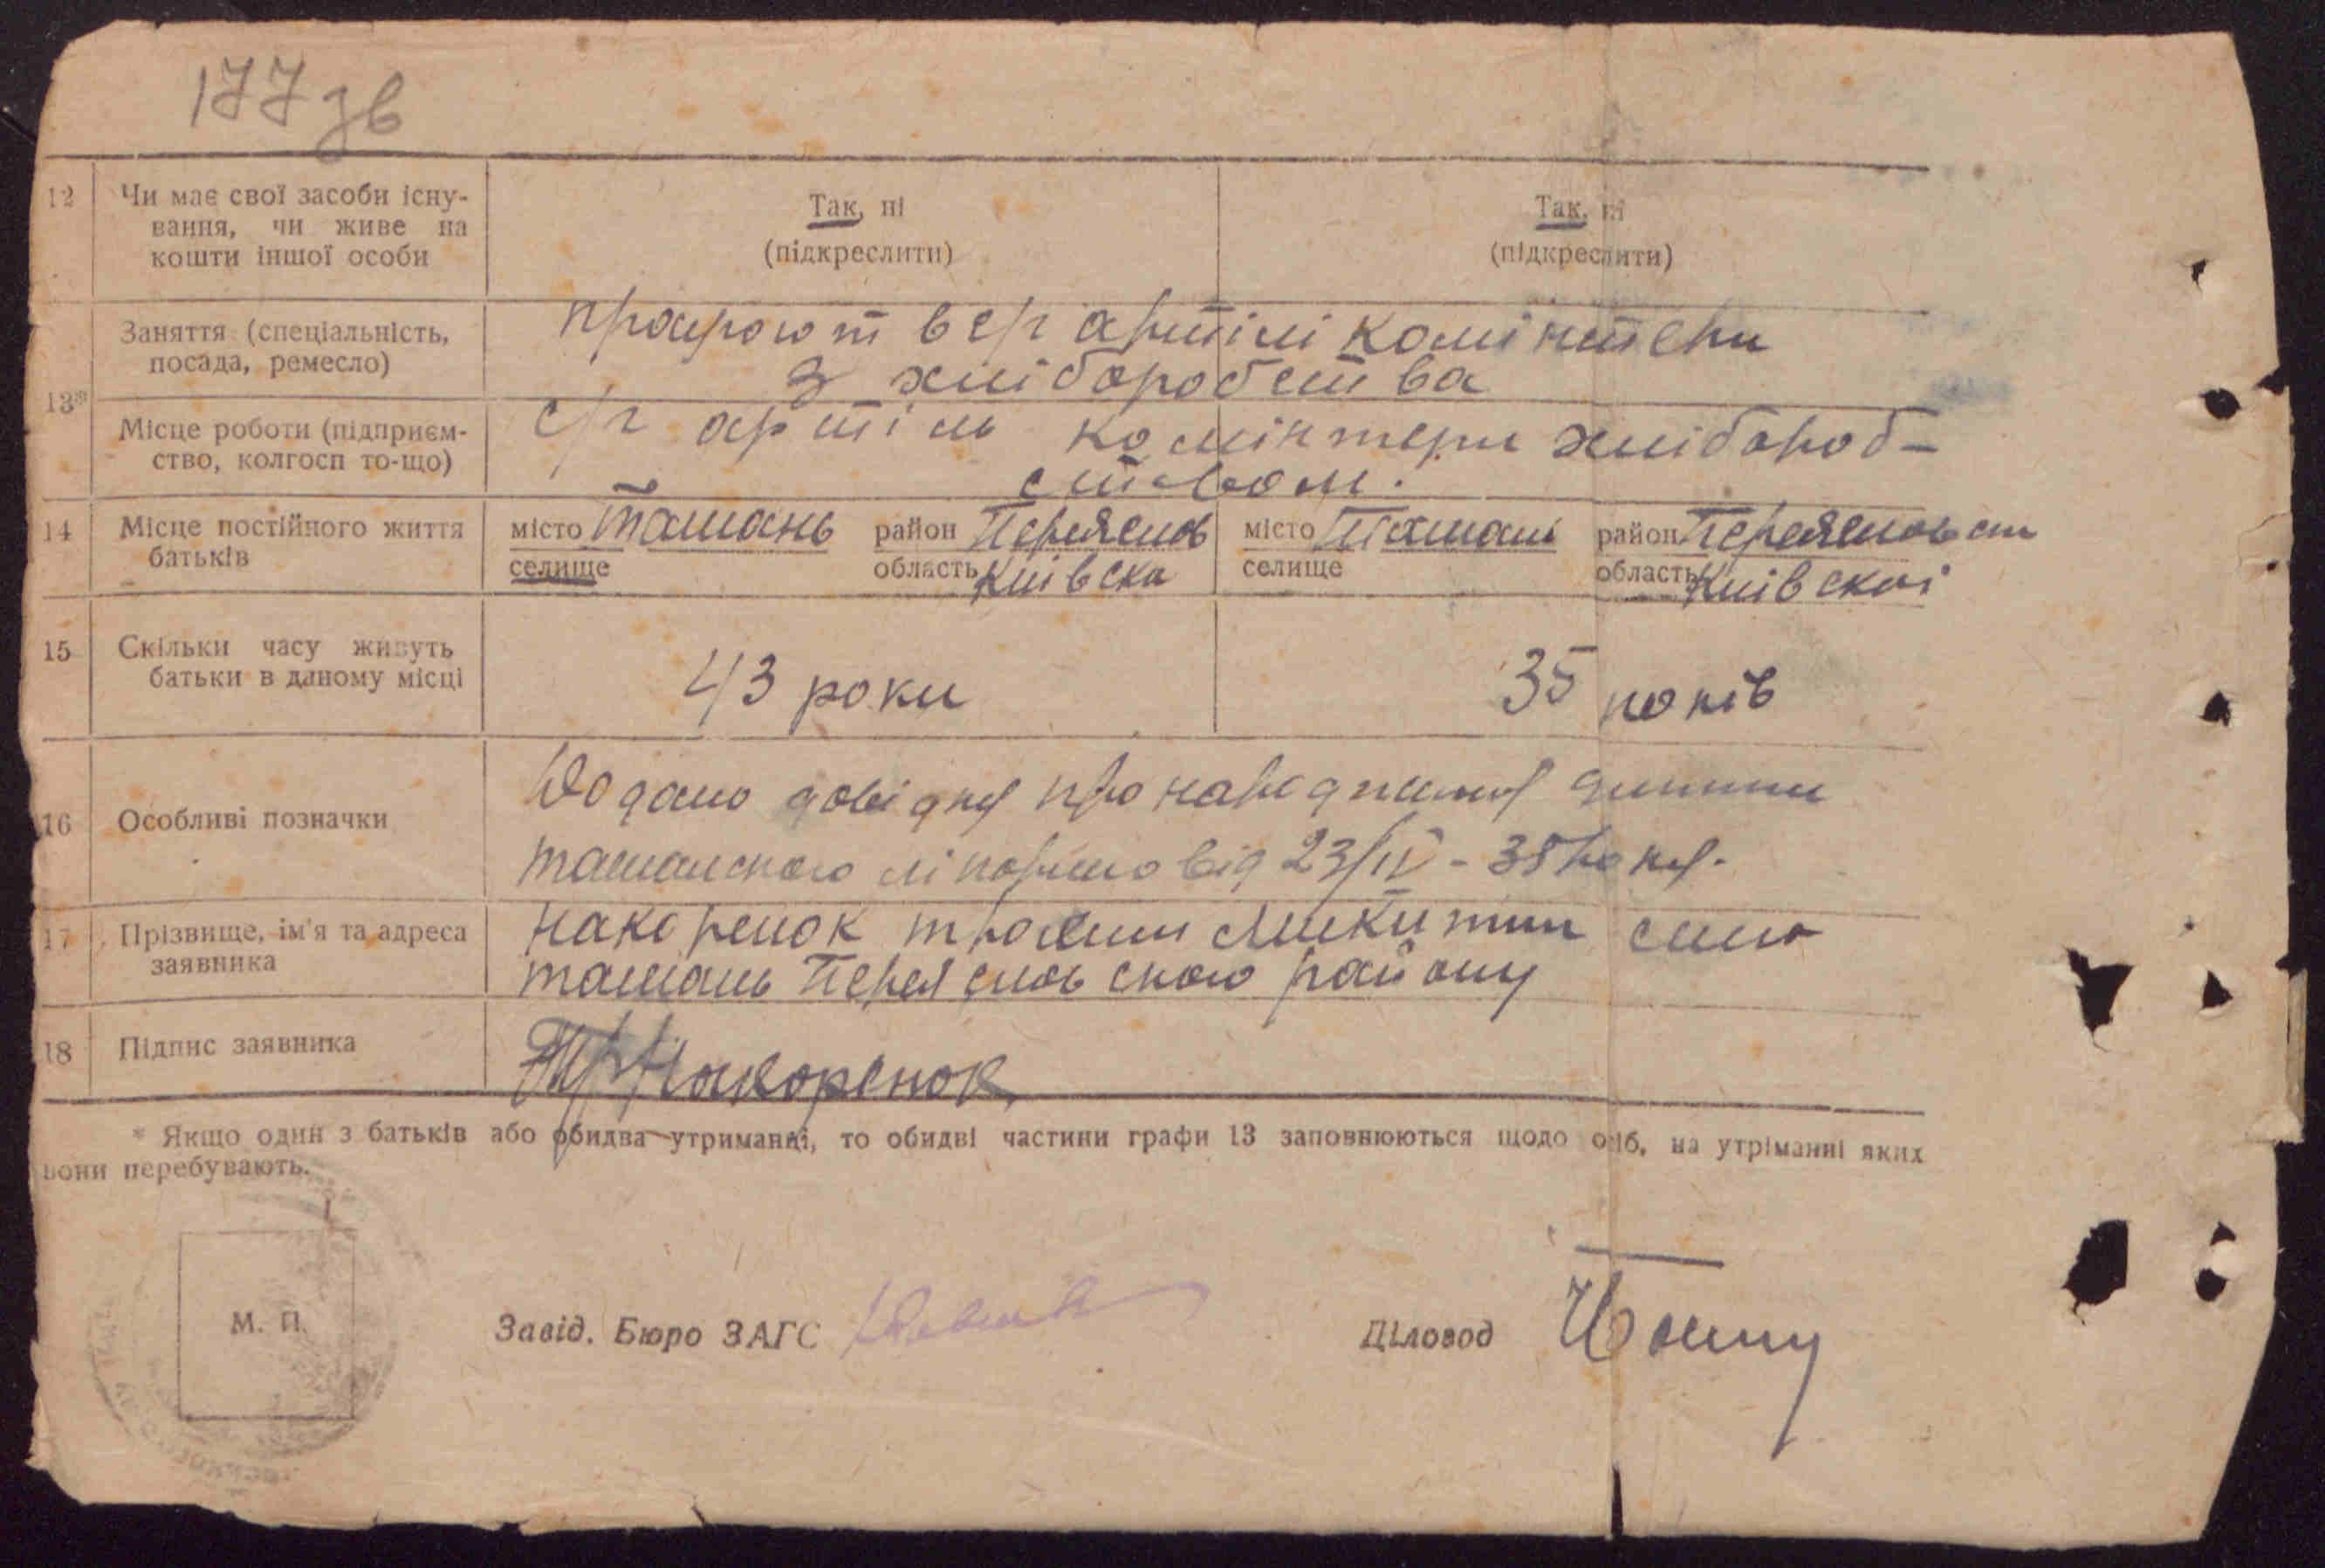 177 зв
12 Чи має свої засоби існу-
вання, чи живе на
кошти іншої особи
Так, ні
(підкреслити)
Так, ні
(підкреслити)
13* Заняття (спеціальність,
посада, ремесло)
в с/г артілі комінтерн
з хліборобства
Місце роботи (підприєм-
ство, колгосп то-що)
с/г артіль комінтерн хлібороб-
ством.
14 Місце постійного життя
батьків
місто Ташань район Переяслов
селище область Київска
місто Ташань район Переяслов
селище область Київскої
15 Скільки часу живуть
батьки в даному місці
43 роки
35 років
16 Особливі позначки
Додано довідку про народження дитини
ташанского від 23/IV - 38 року.
17 Прізвище, ім'я та адреса
заявника
Накоренок Микитин село
ташань Переясловского району
18 Підпис заявника
Накоренок
* Якщо один з батьків або обидва утриманці, то обидві частини графи 13 заповнюються щодо осіб, на утриманні яких
вони перебувають.
М. П.
Завід. Бюро ЗАГС
Діловод